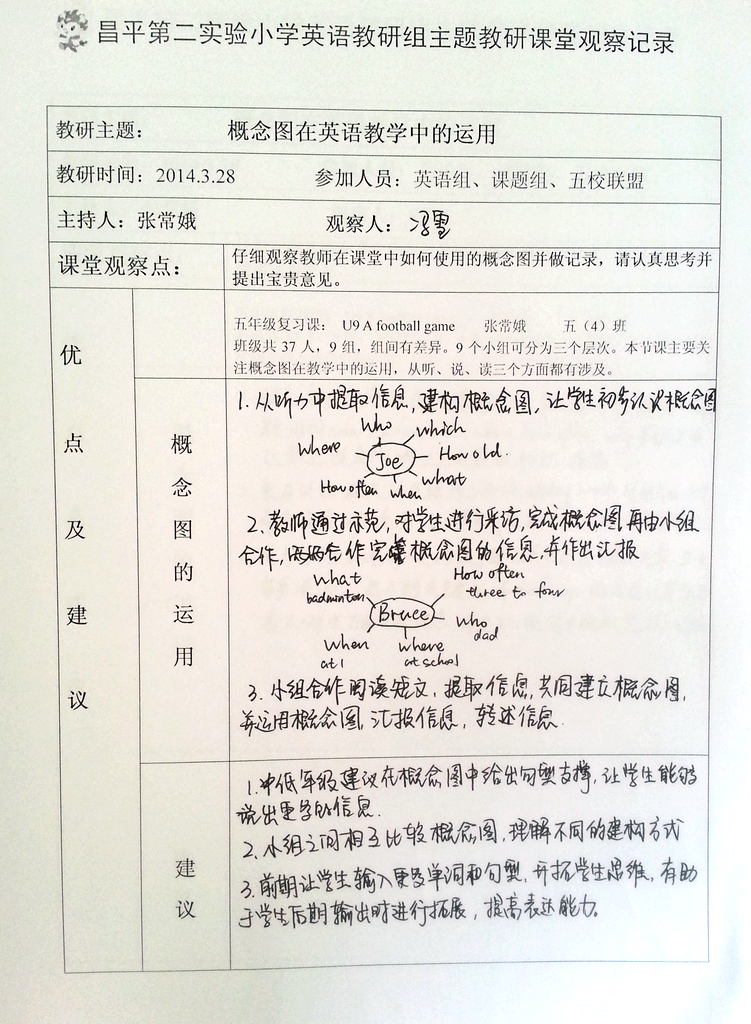 昌平第二实验小学英语教研组主题教研课堂观察记录
教研主题： 概念图在英语教学中的运用
教研时间：2014.3.28 参加人员：英语组、课题组、五校联盟
主持人：张常娥 观察人：冯雪
课堂观察点：
仔细观察教师在课堂中如何使用的概念图并做记录，请认真思考并
提出宝贵意见。
优点及建议
五年级复习课： U9 A football game 张常娥 五（4）班
班级共 37 人，9 组，组间有差异。9 个小组可分为三个层次。本节课主要关
注概念图在教学中的运用，从听、说、读三个方面都有涉及。
概念图的运用
1. 从听力中提取信息，建构概念图，让学生初步认识概念图
who which
where Joe How old.
How often when what
2. 教师通过示范，对学生进行采访，完成概念图，再由小组
合作，两两合作完善概念图的信息，并作出汇报
what How often
badminton three to four
Bruce who
dad
when where
at 1 at school
3. 小组合作阅读短文，提取信息，共同建立概念图，
并运用概念图，汇报信息，转述信息.
建议
1. 中低年级建议在概念图中给出句型支撑，让学生能够
说出更多的信息.
2. 小组之间相互比较概念图，理解不同的建构方式
3. 前期让学生输入更多单词和句型，开拓学生思维，有助
于学生后期输出时进行拓展，提高表达能力。